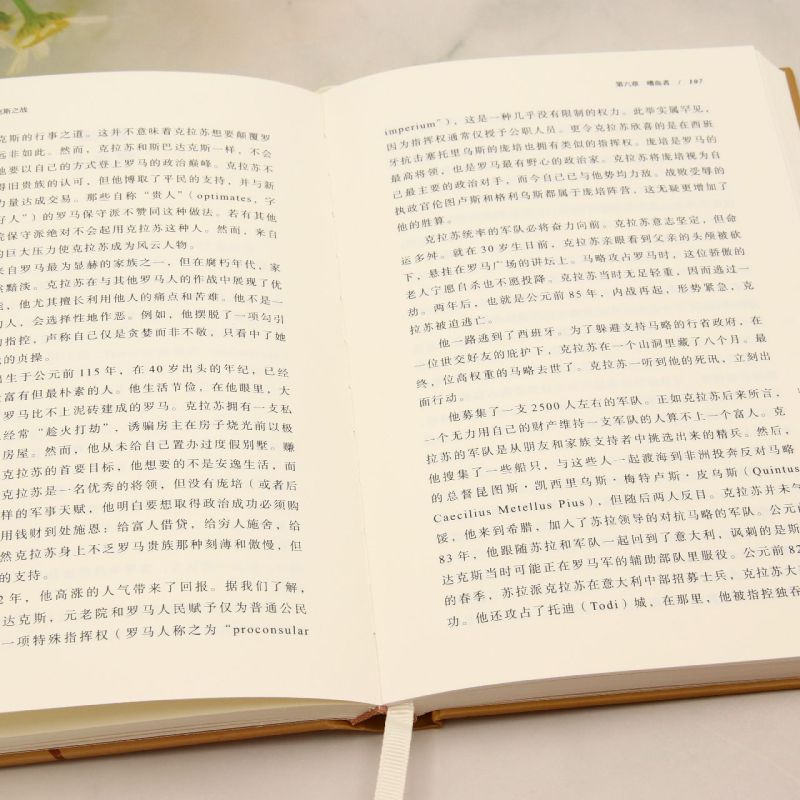 斯之战
克斯的行事之道。这并不意味着克拉苏想要颠覆罗
远非如此。然而，克拉苏和斯巴达克斯一样，不会
他要以自己的方式登上罗马的政治巅峰。克拉苏不
得旧贵族的认可，但他博取了平民的支持，并与新
力量达成交易。那些自称“贵人”（optimates，字
好人”）的罗马保守派不赞同这种做法。若有其他
院保守派绝对不会起用克拉苏这种人。然而，来自
的巨大压力使克拉苏成为风云人物。
来自罗马最为显赫的家族之一，但在腐朽年代，家
然黯淡。克拉苏在与其他罗马人的作战中展现了优
能，他尤其擅长利用他人的痛点和苦难。他不是一
的人，会选择性地作恶。例如，他摆脱了一项勾引
的指控，声称自己仅是贪婪而非不敬，只看中了她
她的贞操。
出生于公元前 115 年，在 40 岁出头的年纪，已经
最富有但最朴素的人。他生活节俭，在他眼里，大
罗马比不上泥砖建成的罗马。克拉苏拥有一支私
经常“趁火打劫”，诱骗房主在房子烧光前以极
房屋。然而，他从未给自己置办过度假别墅。赚
克拉苏的首要目标，他想要的不是安逸生活，而
克拉苏是一名优秀的将领，但没有庞培（或者后
样的军事天赋，他明白要想取得政治成功必须购
用钱财到处施恩：给富人借贷，给穷人施舍，给
然克拉苏身上不乏罗马贵族那种刻薄和傲慢，但
的支持。
2 年，他高涨的人气带来了回报。据我们了解，
达克斯，元老院和罗马人民赋予仅为普通公民
一项特殊指挥权（罗马人称之为“proconsular
第六章 嗜血者 / 107
imperium”），这是一种几乎没有限制的权力。此举实属罕见，
因为指挥权通常仅授予公职人员。更令克拉苏欣喜的是在西班
牙抗击塞托里乌斯的庞培也拥有类似的指挥权。庞培是罗马的
最高将领，也是罗马最有野心的政治家。克拉苏将庞培视为自
己最主要的政治对手，而今自己已与他势均力敌。战败受辱的
执政官伦图卢斯和格利乌斯都属于庞培阵营，这无疑更增加了
他的胜算。
克拉苏统率的军队必将奋力向前。克拉苏意志坚定，但命
运多舛。就在 30 岁生日前，克拉苏亲眼看到父亲的头颅被砍
下，悬挂在罗马广场的讲坛上。马略攻占罗马时，这位骄傲的
老人宁愿自杀也不愿投降。克拉苏当时无足轻重，因而逃过一
劫。两年后，也就是公元前 85 年，内战再起，形势紧急，克
拉苏被迫逃亡。
他一路逃到了西班牙。为了躲避支持马略的行省政府，在
一位世交好友的庇护下，克拉苏在一个山洞里藏了八个月。最
终，位高权重的马略去世了。克拉苏一听到他的死讯，立刻出
面行动。
他募集了一支 2500 人左右的军队。正如克拉苏后来所言，
一个无力用自己的财产维持一支军队的人算不上一个富人。克
拉苏的军队是从朋友和家族支持者中挑选出来的精兵。然后，
他搜集了一些船只，与这些人一起渡海到非洲投奔反对马略
的总督昆图斯·凯西里乌斯·梅特卢斯·皮乌斯（Quintus
Caecilius Metellus Pius），但随后两人反目。克拉苏并未气
馁，他来到希腊，加入了苏拉领导的对抗马略的军队。公元前
83 年，他跟随苏拉和军队一起回到了意大利，讽刺的是斯
达克斯当时可能正在罗马军的辅助部队里服役。公元前 82
的春季，苏拉派克拉苏在意大利中部招募士兵，克拉苏大
功。他还攻占了托迪（Todi）城，在那里，他被指控独吞